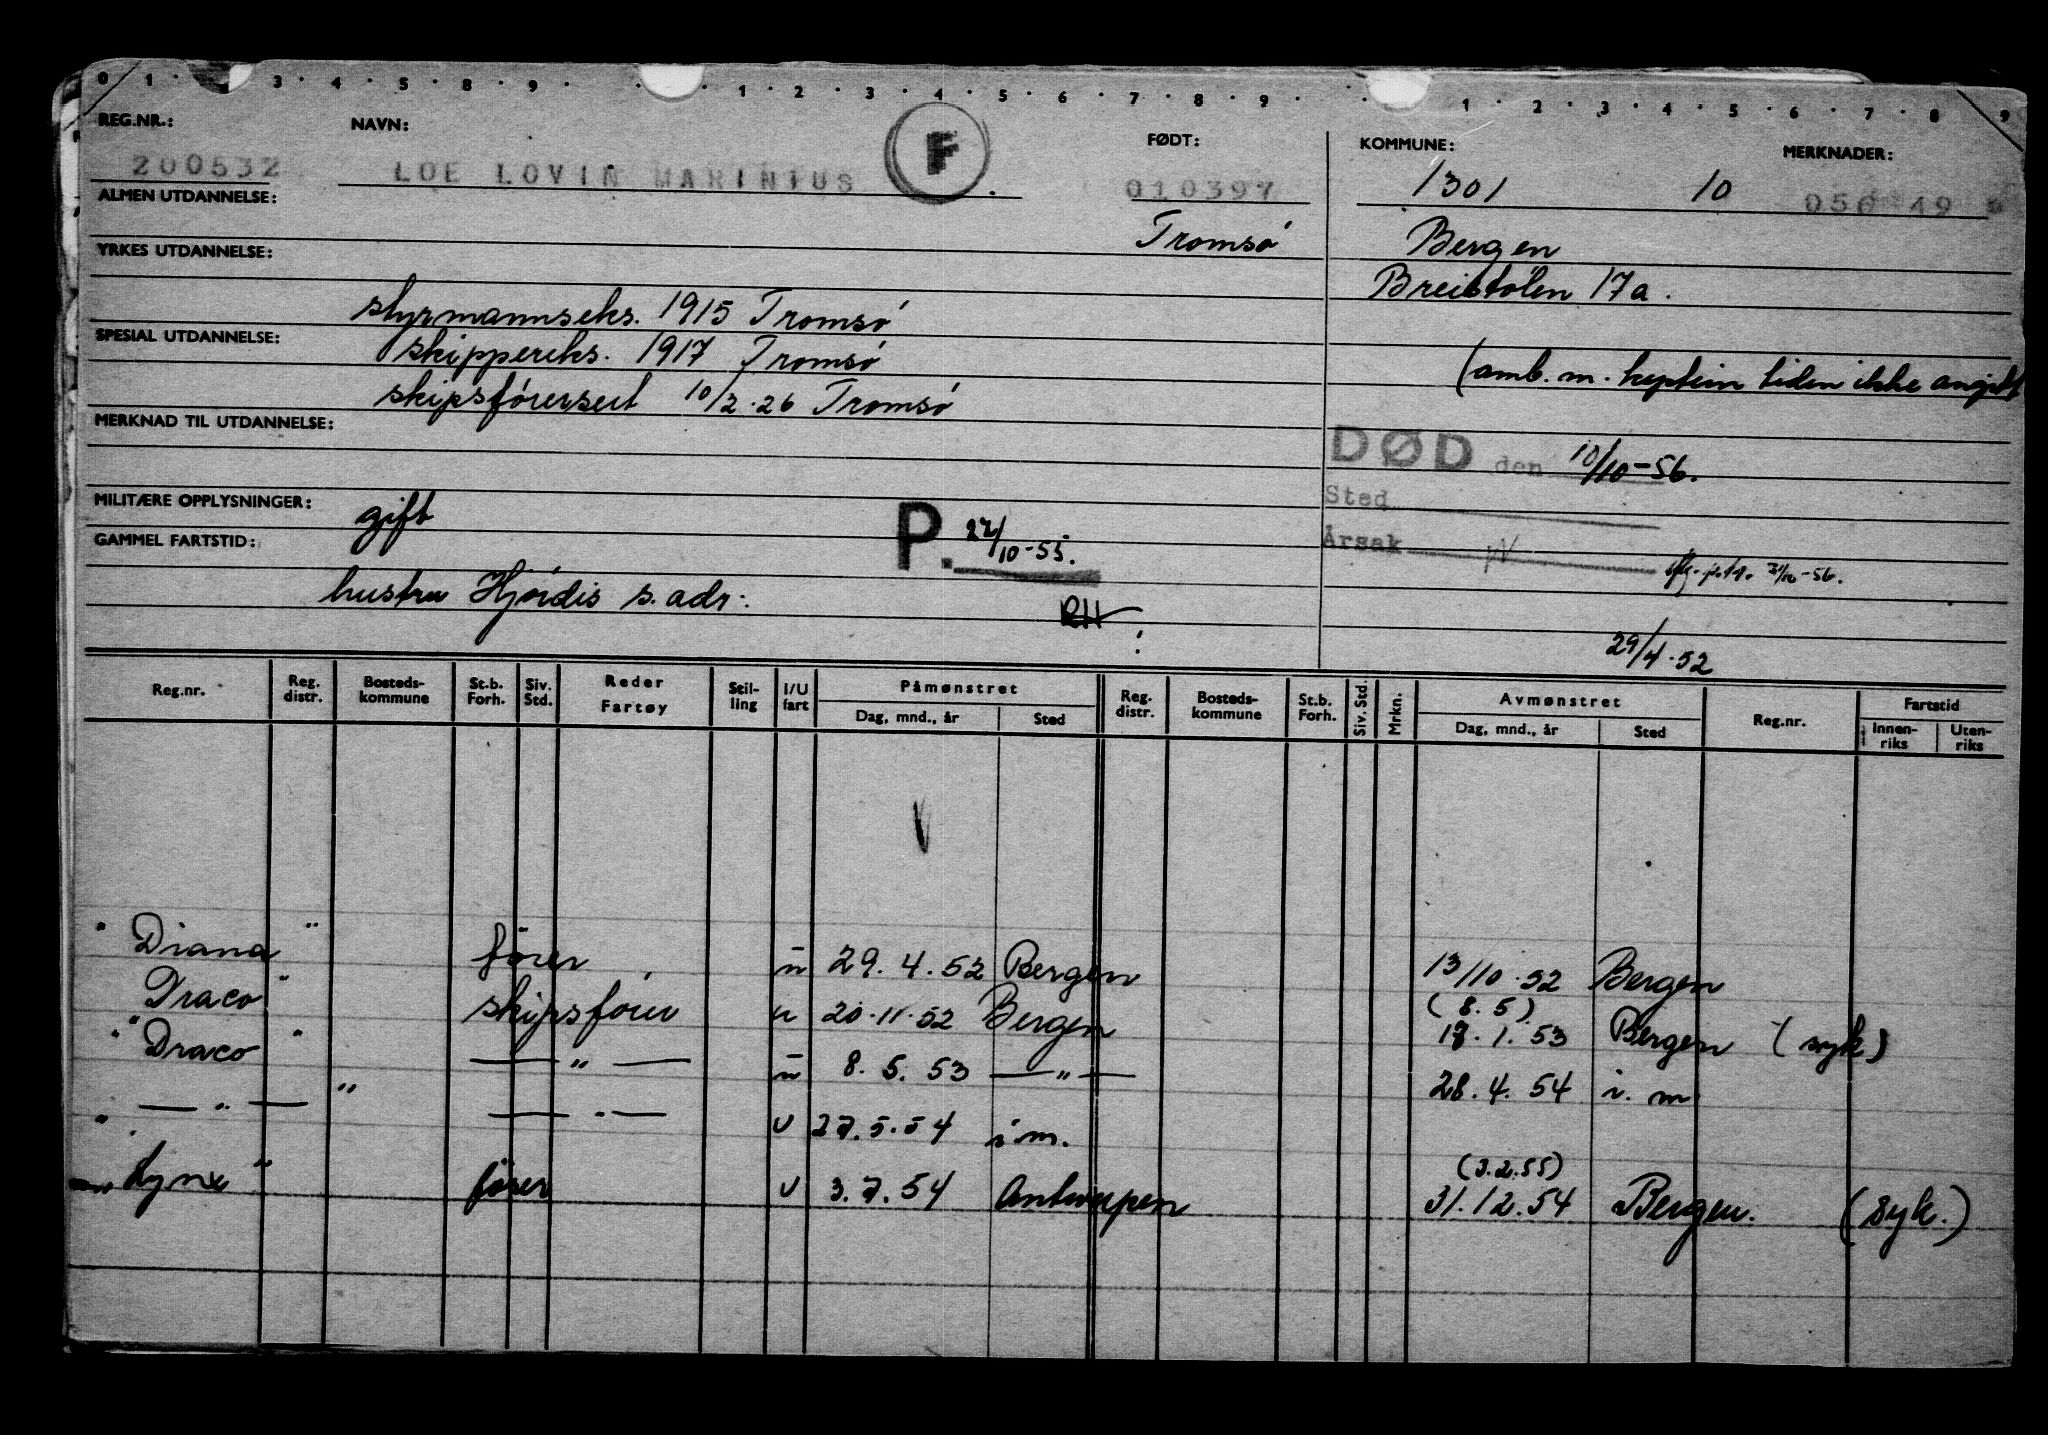 0 1 · 3 · 4 · 5 · 8 · 9 · · 1 · 2 · 3 · 4 · 5 · 6 · 7 · 8 · 9 · · 1 · 2 · 3 · 4 · 5 · 6 · 7 · 8 · 9
REG.NR.: NAVN: FØDT: KOMMUNE: MERKNADER:
200532 LOE LOVIN MARINIUS F 010397 1301 10 050 49
ALMEN UTDANNELSE: Tromsø Bergen
YRKES UTDANNELSE: Breistølen 17a.
styrmannseks. 1915 Tromsø
SPESIAL UTDANNELSE: skippereks. 1917 Tromsø (amb. m. kaptein tiden ikke angitt
skipsførersert 10/2.26 Tromsø
MERKNAD TIL UTDANNELSE: DØD den 10/10-56.
MILITÆRE OPPLYSNINGER: gift P. 27/10-55. Sted
GAMMEL FARTSTID: Årsak
hustru Hjørdis s. adr:. RH
29/4.52
Reg.nr. Reg. distr. Bosteds-kommune St.b. Forh. Siv. Std. Reder Fartøy Stil-ling I/U fart Påmønstret Dag, mnd., år Sted Reg. distr. Bosteds-kommune St.b. Forh. Siv. Std. Mrkn. Avmønstret Dag, mnd., år Sted Reg.nr. Fartstid Innen-riks Uten-riks
" Diana " fører u 29.4.52 Bergen 13/10.52 Bergen
Draco " skipsfører u 20.11.52 Bergen (8.5) 17.1.53 Bergen (syk)
" Draco " —"— u 8.5.53 —"— 28.4.54 i.m
—"— " —"— u 27.5.54 i m.
" Lynx " fører u 3.7.54 Antwerpen (3.2.55) 31.12.54 Bergen. (syk.)